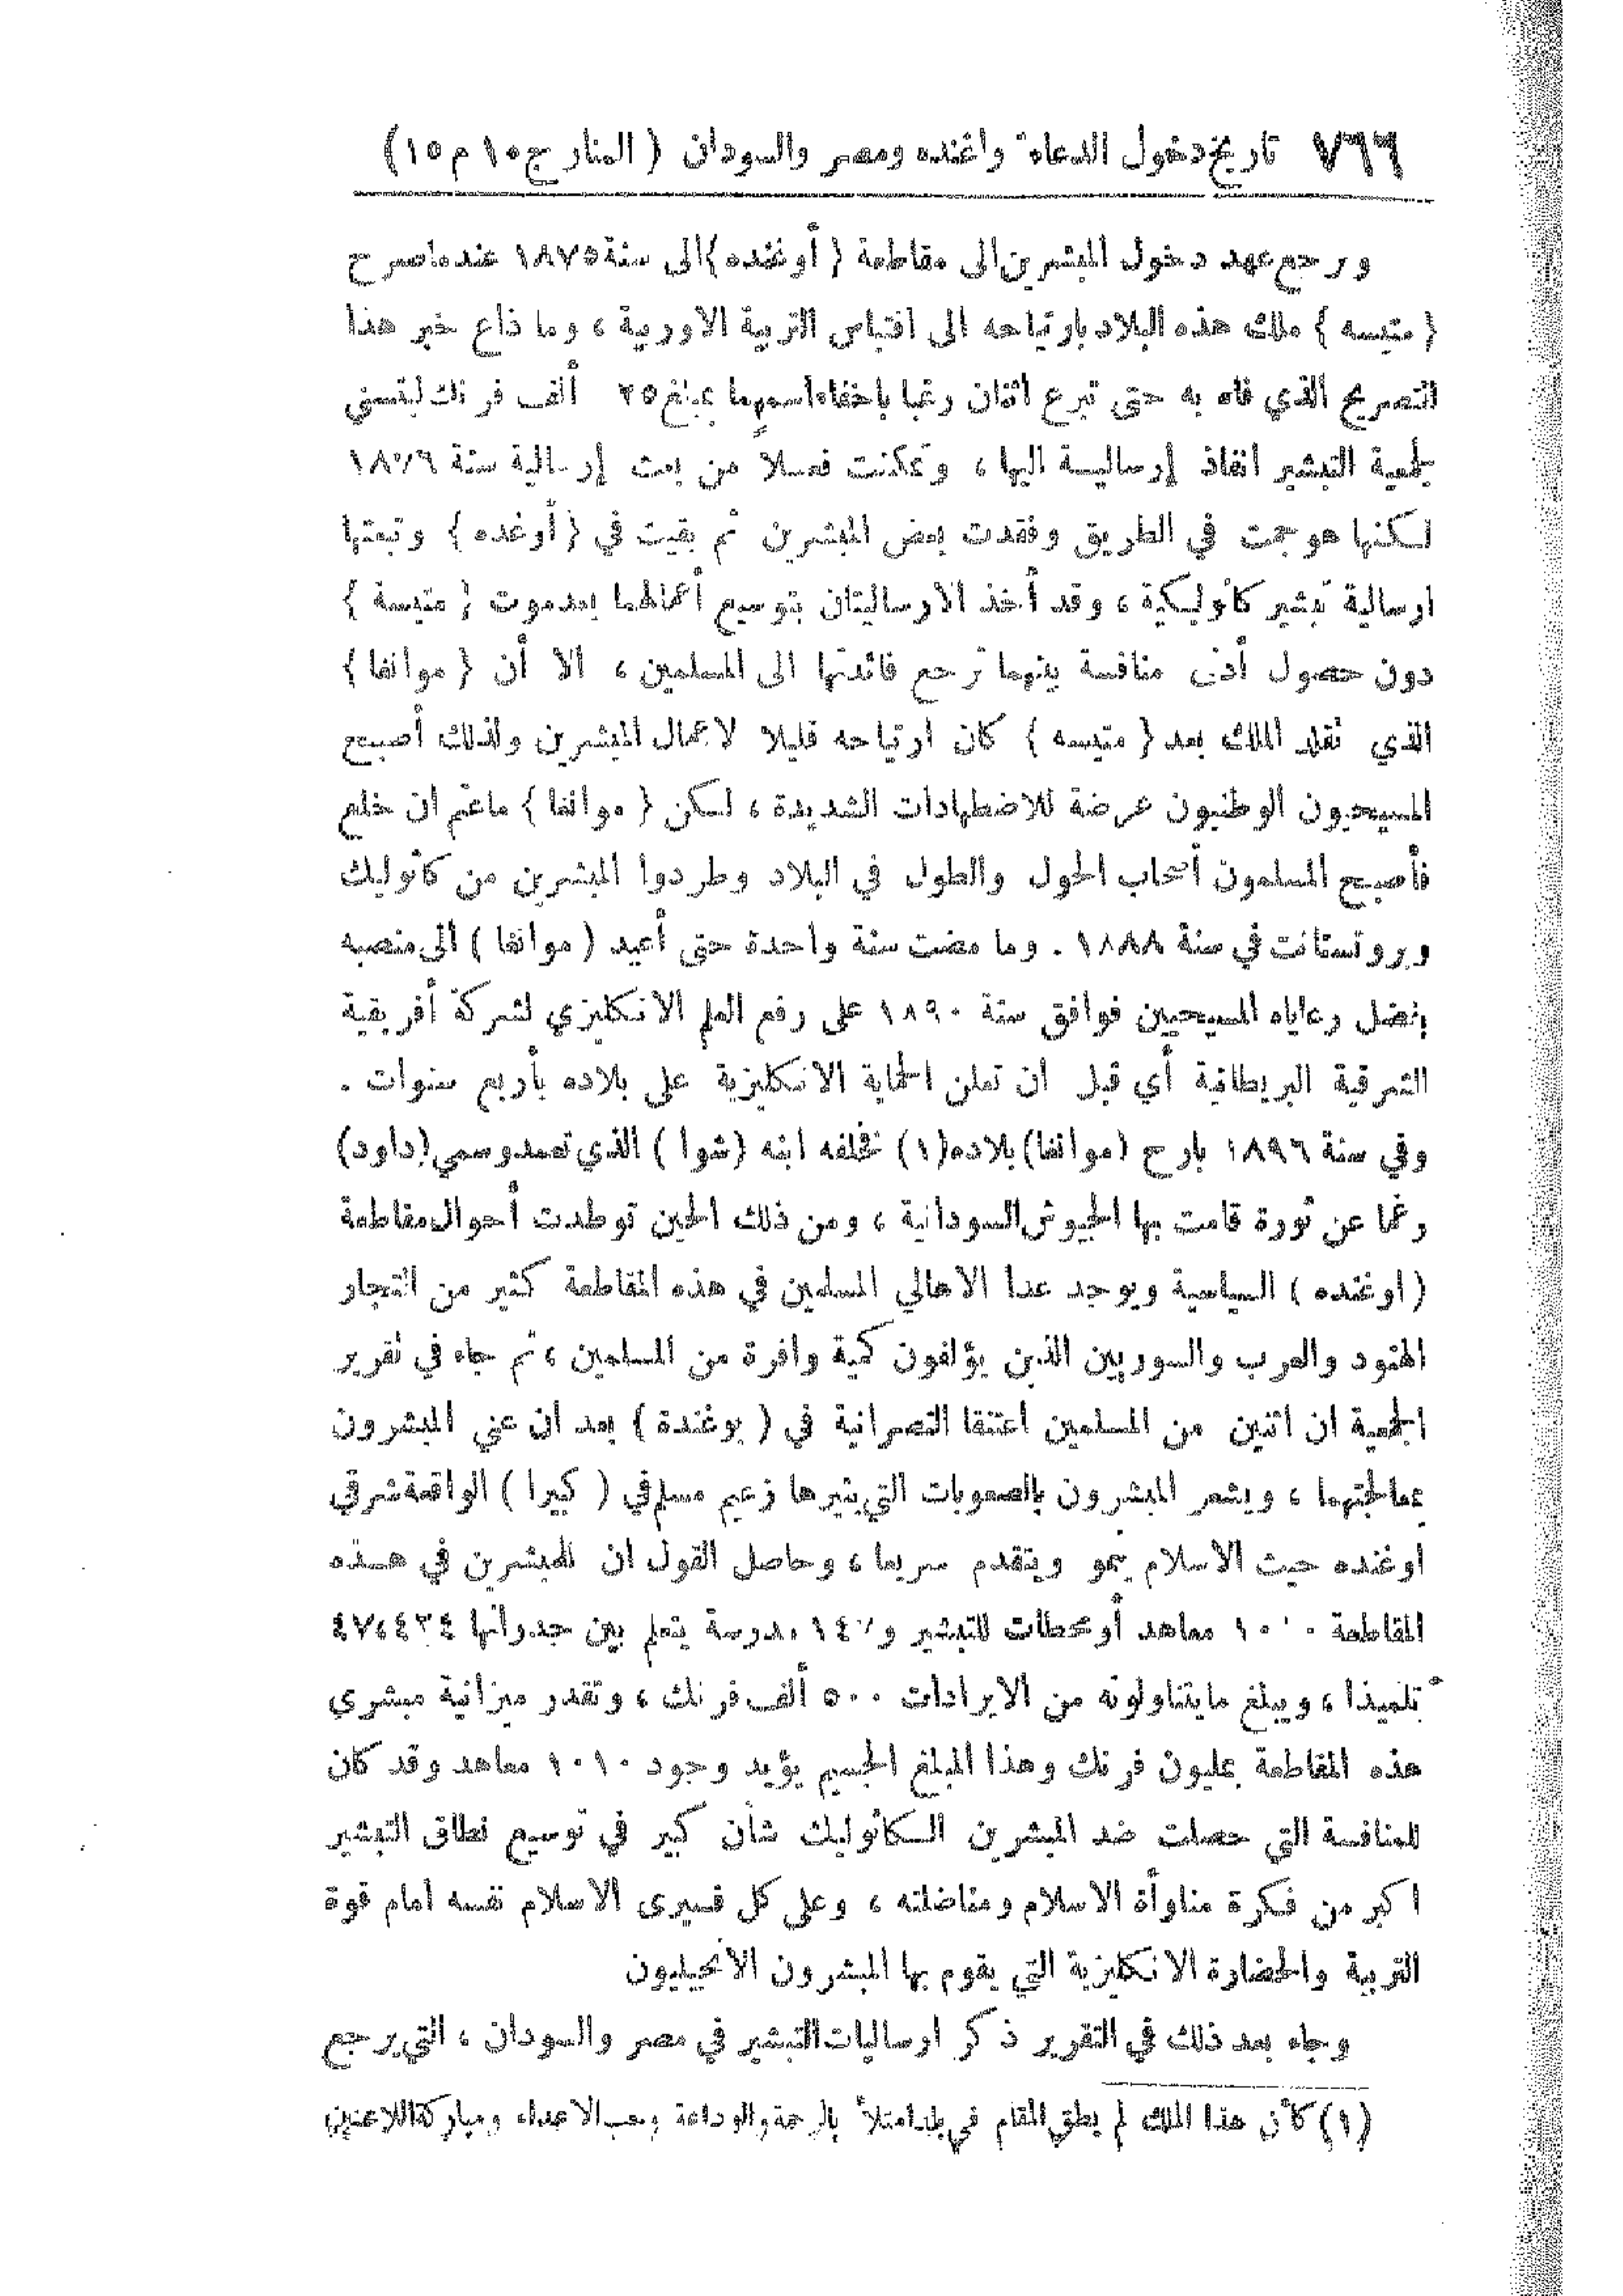 ٧٦٦ تاريخ دخول الدعاة واغنده ومصر والسودان ( المنار ج ١٠ م ١٥ )
ورجع عهد دخول المبشرين الى مقاطعة ( أوغنده ) الى سنة ١٨٧٥ عندما صرح
( متيسه ) ملك هذه البلاد بارتياحه الى اقتباس التربية الاوربية ، وما ذاع خبر هذا
التصريح الذي فاه به حتى تبرع اثنان رغبا باخفاء اسميهما بمبلغ ٢٥ ألف فرنك ليتسنى
لجمعية التبشير انفاذ إرسالية اليها ، وتمكنت فعلاً من بعث إرسالية سنة ١٨٧٦
لكنها هوجمت في الطريق وفقدت بعض المبشرين ثم بقيت في ( أوغنده ) وتبعتها
ارسالية تبشير كاثوليكية ، وقد أخذ الارساليتان بتوسيع أعمالهما بعد موت ( متيسة )
دون حصول أدنى منافسة بينهما ترجع فائدتها الى المسلمين ، الا أن ( موانغا )
الذي تقلد الملك بعد ( متيسه ) كان ارتياحه قليلا لاعمال المبشرين ولذلك أصبح
المسيحيون الوطنيون عرضة للاضطهادات الشديدة ، لكن ( موانغا ) ماعتم ان خلع
فأصبح المسلمون أصحاب الحول والطول في البلاد وطردوا المبشرين من كاثوليك
وبروتستانت في سنة ١٨٨٨ . وما مضت سنة واحدة حتى أعيد ( موانغا ) الى منصبه
بفضل رعاياه المسيحيين فوافق سنة ١٨٩٠ على رفع العلم الانكليزي لشركة أفريقية
الشرقية البريطانية أي قبل ان تعلن الحماية الانكليزية على بلاده بأربع سنوات .
وفي سنة ١٨٩٦ بارح ( موانغا ) بلاده (١) فخلفه ابنه ( شوا ) الذي تعمد وسمي ( داود )
رغما عن ثورة قامت بها الجيوش السودانية ، ومن ذلك الحين توطدت أحوال مقاطعة
( اوغنده ) السياسية ويوجد عدا الاهالي المسلمين في هذه المقاطعة كثير من التجار
الهنود والعرب والسوريين الذين يؤلفون كمية وافرة من المسلمين ، ثم جاء في تقرير
الجمعية ان اثنين من المسلمين اعتنقا النصرانية في ( بوغندة ) بعد ان عني المبشرون
بمعالجتهما ، ويشعر المبشرون بالصعوبات التي يثيرها زعيم مسلم في ( كبيرا ) الواقعة شرقي
اوغنده حيث الاسلام ينمو ويتقدم سريعا ، وحاصل القول ان للمبشرين في هذه
المقاطعة ١٠١٠ معاهد أو محطات للتبشير و مدرسة يتعلم بين جدرانها ٤٧،٤٣٤
تلميذا ، ويبلغ مايتناولونه من الايرادات ٥٠٠ ألف فرنك ، وتقدر ميزانية مبشري
هذه المقاطعة بمليون فرنك وهذا المبلغ الجسيم يؤيد وجود ١٠١٠ معاهد وقد كان
للمنافسة التي حصلت ضد المبشرين الكاثوليك شأن كبير في توسيع نطاق التبشير
اكبر من فكرة مناوأة الاسلام ومناضلته ، وعلى كل فسيرى الاسلام نفسه امام قوة
التربية والحضارة الانكليزية التي يقوم بها المبشرون الانجيليون
وجاء بعد ذلك في التقرير ذكر ارساليات التبشير في مصر والسودان ، التي يرجع
(١) كأن هذا الملك لم يطق المقام في بلد امتلأ بالرحمة والوداعة وحب الاعداء ومباركة اللاعنين